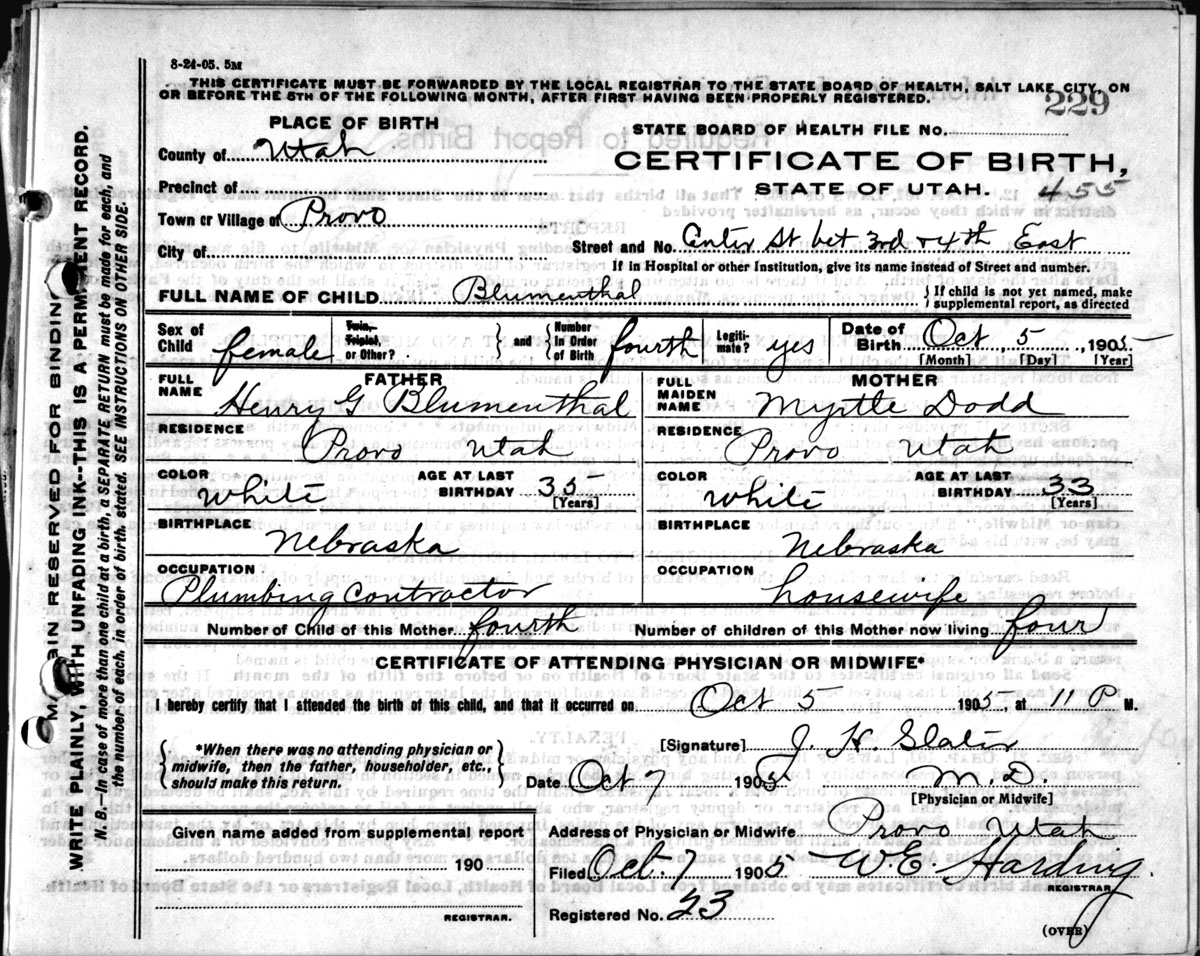 8-24-05. 5M
THIS CERTIFICATE MUST BE FORWARDED BY THE LOCAL REGISTRAR TO THE STATE BOARD OF HEALTH, SALT LAKE CITY, ON
OR BEFORE THE 5TH OF THE FOLLOWING MONTH, AFTER FIRST HAVING BEEN PROPERLY REGISTERED.
229
PLACE OF BIRTH
STATE BOARD OF HEALTH FILE No.
County of Utah
CERTIFICATE OF BIRTH,
Precinct of
STATE OF UTAH. 455
Town or Village of Provo
City of
Street and No. Center St bet 3rd & 4th East
If in Hospital or other Institution, give its name instead of Street and number.
FULL NAME OF CHILD Blumenthal
If child is not yet named, make
supplemental report, as directed
Sex of Child female
Twin, Triplet, or Other?
and
Number In Order of Birth fourth
Legiti-mate? yes
Date of Birth Oct 5, 1905
[Month] [Day] [Year]
FATHER
FULL NAME Henry G Blumenthal
RESIDENCE Provo Utah
COLOR White
AGE AT LAST BIRTHDAY 35
[Years]
BIRTHPLACE
Nebraska
OCCUPATION
Plumbing Contractor
MOTHER
FULL MAIDEN NAME Myrtle Dodd
RESIDENCE Provo Utah
COLOR White
AGE AT LAST BIRTHDAY 33
[Years]
BIRTHPLACE
Nebraska
OCCUPATION
housewife
Number of Child of this Mother fourth
Number of children of this Mother now living four
CERTIFICATE OF ATTENDING PHYSICIAN OR MIDWIFE*
I hereby certify that I attended the birth of this child, and that it occurred on Oct 5 1905, at 11 P M.
*When there was no attending physician or
midwife, then the father, householder, etc.,
should make this return.
[Signature] J. H. Slater
Date Oct 7 1905 M.D.
[Physician or Midwife]
Given name added from supplemental report
190
REGISTRAR.
Address of Physician or Midwife Provo Utah
Filed Oct. 7 1905 W. E. Harding.
REGISTRAR
Registered No. 23
(OVER)
MARGIN RESERVED FOR BINDING
WRITE PLAINLY, WITH UNFADING INK--THIS IS A PERMANENT RECORD.
N. B.--In case of more than one child at a birth, a SEPARATE RETURN must be made for each, and
the number of each, in order of birth, stated. SEE INSTRUCTIONS ON OTHER SIDE.